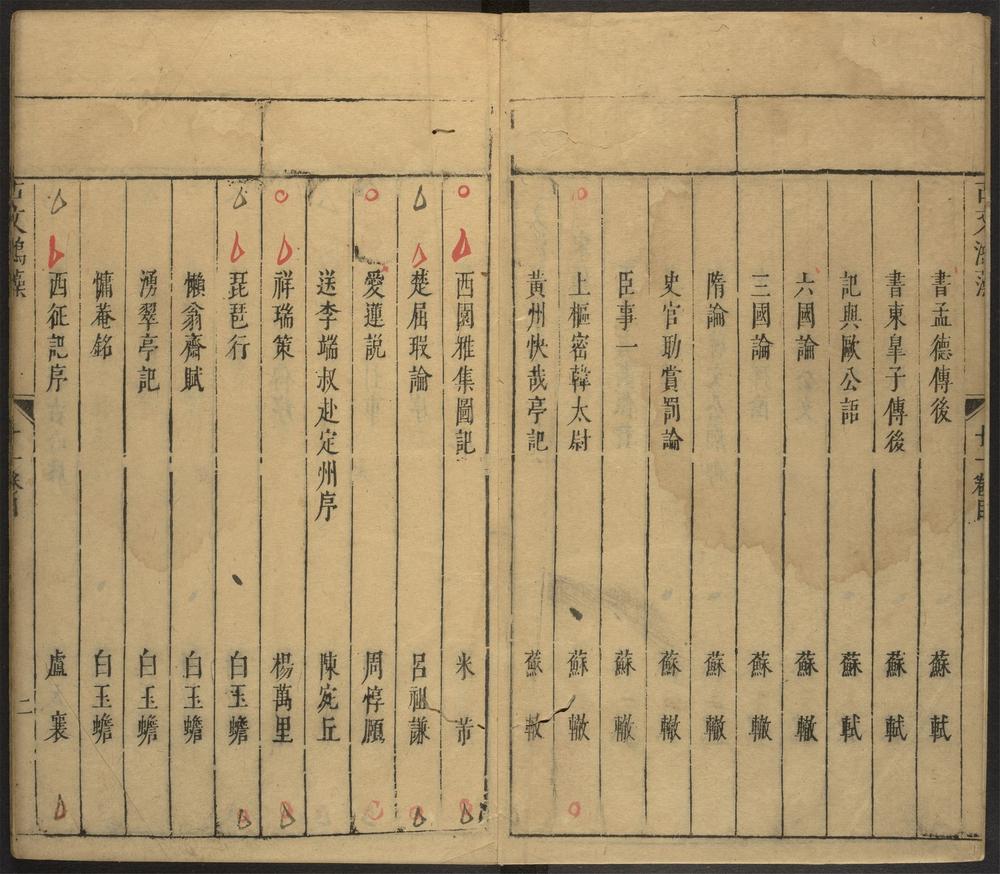 書孟德傳後 蘇軾
書東臯子傳後 蘇軾
記與歐公語 蘇軾
六國論 蘇轍
三國論 蘇轍
隋論 蘇轍
史官助賞罰論 蘇轍
臣事一 蘇轍
上樞密韓太尉 蘇轍
黃州快哉亭記 蘇轍
西園雅集圖記 米芾
楚屈瑕論 呂祖謙
愛蓮說 周惇頤
送李端叔赴定州序 陳宛丘
祥瑞策 楊萬里
琵琶行 白玉蟾
懶翁齋賦 白玉蟾
湧翠亭記 白玉蟾
慵菴銘 白玉蟾
西征記序 盧襄
二